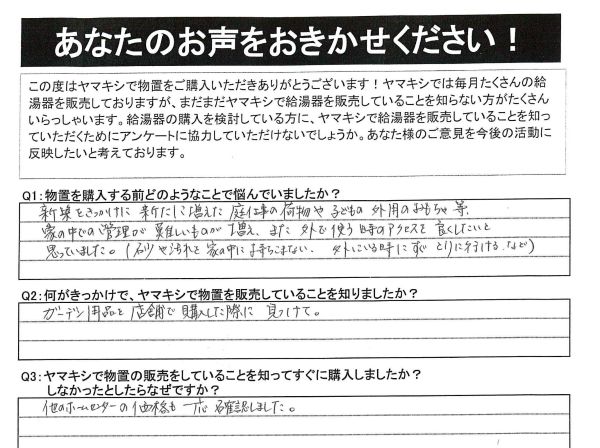 あなたのお声をおきかせください！
この度はヤマキシで物置をご購入いただきありがとうございます！ヤマキシでは毎月たくさんの給
湯器を販売しておりますが、まだまだヤマキシで給湯器を販売していることを知らない方がたくさん
いらっしゃいます。給湯器の購入を検討している方に、ヤマキシで給湯器を販売していることを知っ
ていただくためにアンケートに協力していただけないでしょうか。あなた様のご意見を今後の活動に
反映したいと考えております。
Q1：物置を購入する前どのようなことで悩んでいましたか？
新築をきっかけに 新たに増えた 庭仕事の荷物や 子どもの 外用のおもちゃ 等、
家の中での管理が 難しいものが 増え、また 外で使う時のアクセスを 良くしたいと
思っていました。（砂や汚れを 家の中に持ちこまない、外にいる時にすぐ とりに行ける など）
Q2：何がきっかけで、ヤマキシで物置を販売していることを知りましたか？
ガーデン用品を 店舗で 購入した際に 見つけて。
Q3：ヤマキシで物置の販売をしていることを知ってすぐに購入しましたか？
しなかったとしたらなぜですか？
他のホームセンターの価格も 一応 確認しました。